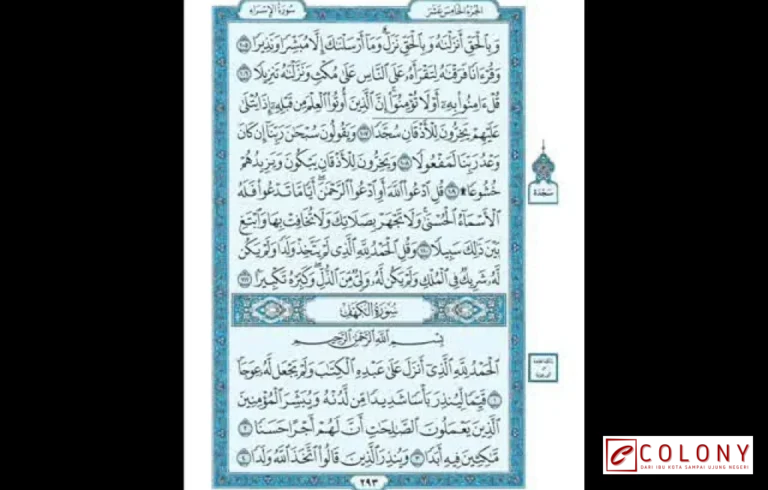 سورة الإسراء
الجزء الخامس عشر
وَبِالْحَقِّ أَنزَلْنَاهُ وَبِالْحَقِّ نَزَلَ وَمَا أَرْسَلْنَاكَ إِلَّا مُبَشِّرًا وَنَذِيرًا ١٠٥
وَقُرْءَانًا فَرَقْنَاهُ لِتَقْرَأَهُ عَلَى النَّاسِ عَلَى مُكْثٍ وَنَزَّلْنَاهُ تَنزِيلًا ١٠٦
قُلْ ءَامِنُوا بِهِ أَوْ لَا تُؤْمِنُوا إِنَّ الَّذِينَ أُوتُوا الْعِلْمَ مِن قَبْلِهِ إِذَا يُتْلَى
عَلَيْهِمْ يَخِرُّونَ لِلْأَذْقَانِ سُجَّدًا ١٠٧ وَيَقُولُونَ سُبْحَانَ رَبِّنَا إِن كَانَ
وَعْدُ رَبِّنَا لَمَفْعُولًا ١٠٨ وَيَخِرُّونَ لِلْأَذْقَانِ يَبْكُونَ وَيَزِيدُهُمْ
خُشُوعًا ۩ ١٠٩ قُلِ ادْعُوا اللَّهَ أَوِ ادْعُوا الرَّحْمَٰنَ أَيًّا مَّا تَدْعُوا فَلَهُ
سجدة
الْأَسْمَاءُ الْحُسْنَى وَلَا تَجْهَرْ بِصَلَاتِكَ وَلَا تُخَافِتْ بِهَا وَابْتَغِ
بَيْنَ ذَٰلِكَ سَبِيلًا ١١٠ وَقُلِ الْحَمْدُ لِلَّهِ الَّذِي لَمْ يَتَّخِذْ وَلَدًا وَلَمْ يَكُن
لَّهُ شَرِيكٌ فِي الْمُلْكِ وَلَمْ يَكُن لَّهُ وَلِيٌّ مِّنَ الذُّلِّ وَكَبِّرْهُ تَكْبِيرًا ١١١
سورة الكهف
بِسْمِ اللَّهِ الرَّحْمَٰنِ الرَّحِيمِ
الْحَمْدُ لِلَّهِ الَّذِي أَنزَلَ عَلَى عَبْدِهِ الْكِتَابَ وَلَمْ يَجْعَل لَّهُ عِوَجًا
١ قَيِّمًا لِّيُنذِرَ بَأْسًا شَدِيدًا مِّن لَّدُنْهُ وَيُبَشِّرَ الْمُؤْمِنِينَ
الَّذِينَ يَعْمَلُونَ الصَّالِحَاتِ أَنَّ لَهُمْ أَجْرًا حَسَنًا ٢
مَّاكِثِينَ فِيهِ أَبَدًا ٣ وَيُنذِرَ الَّذِينَ قَالُوا اتَّخَذَ اللَّهُ وَلَدًا ٤
٢٩٣
eCOLONY
DARI IBU KOTA SAMPAI UJUNG NEGERI